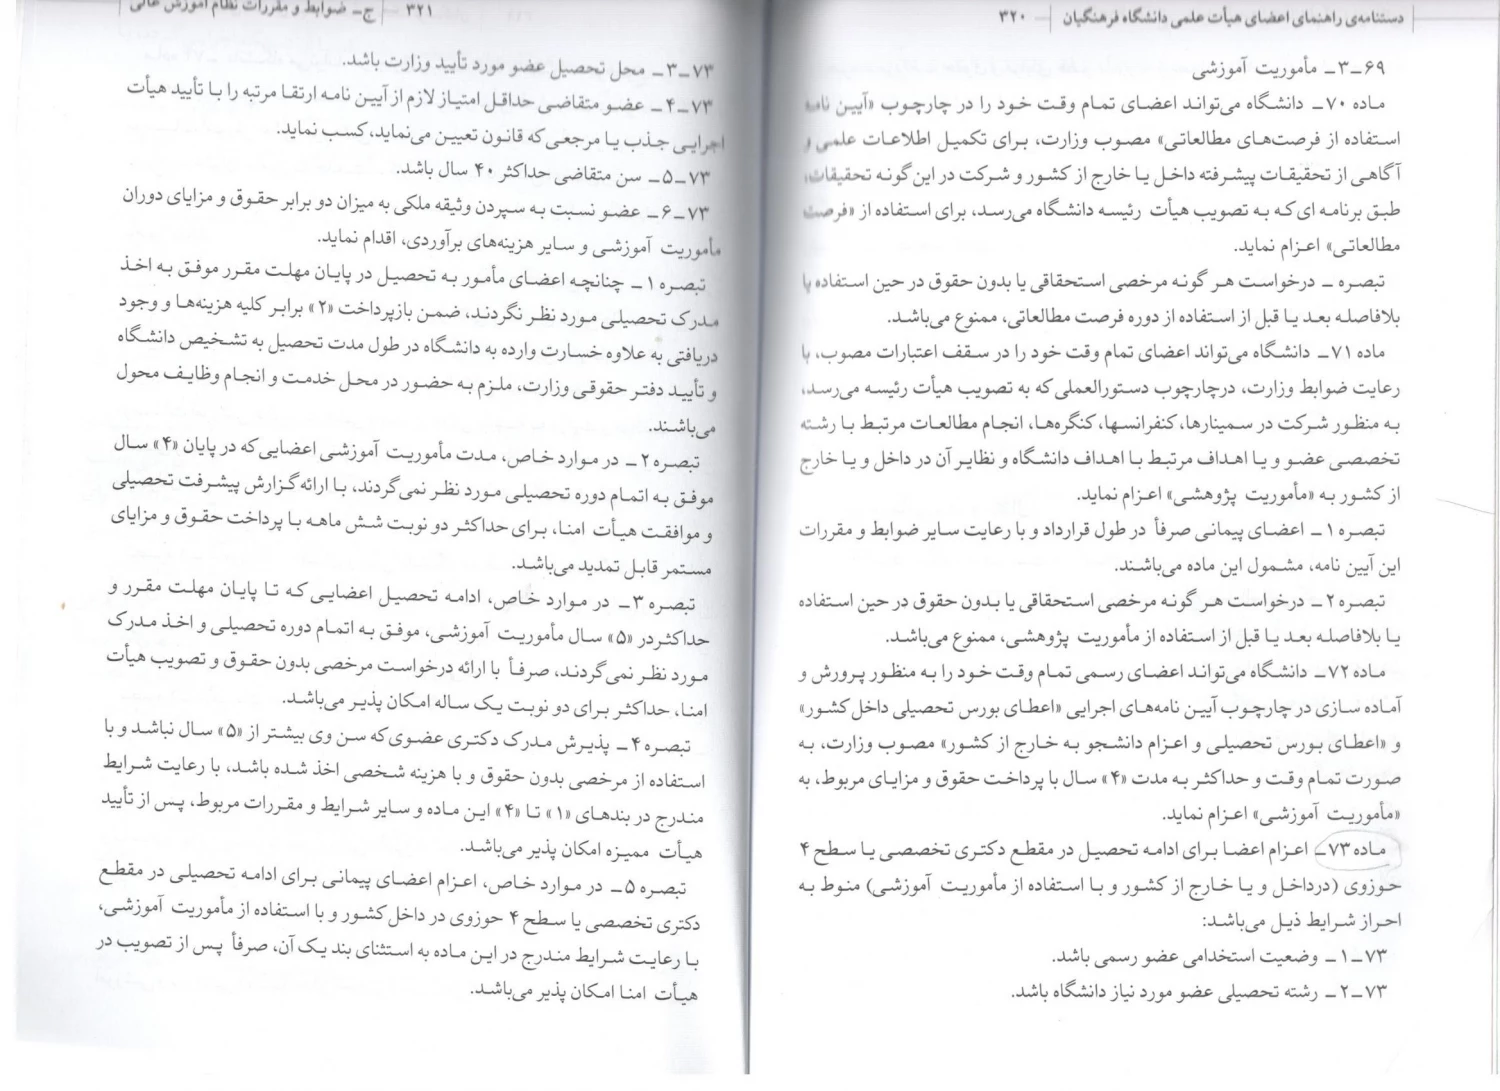 دستنامه‌ی راهنمای اعضای هیأت علمی دانشگاه فرهنگیان — ۳۲۰
۶۹ـ۳ـ مأموریت آموزشی
ماده ۷۰ـ دانشگاه می‌تواند اعضای تمام وقت خود را در چارچوب «آیین نامه
استفاده از فرصت‌های مطالعاتی» مصوب وزارت، برای تکمیل اطلاعات علمی و
آگاهی از تحقیقات پیشرفته داخل یا خارج از کشور و شرکت در این‌گونه تحقیقات،
طبق برنامه ای‌که به تصویب هیأت رئیسه دانشگاه می‌رسد، برای استفاده از «فرصت
مطالعاتی» اعزام نماید.
تبصره ـ درخواست هر گونه مرخصی استحقاقی یا بدون حقوق در حین استفاده یا
بلافاصله بعد یا قبل از استفاده از دوره فرصت مطالعاتی، ممنوع می‌باشد.
ماده ۷۱ـ دانشگاه می‌تواند اعضای تمام وقت خود را در سقف اعتبارات مصوب، با
رعایت ضوابط وزارت، درچارچوب دستورالعملی‌که به تصویب هیأت رئیسه می‌رسد،
به منظور شرکت در سمینارها، کنفرانسها، کنگره‌ها، انجام مطالعات مرتبط با رشته
تخصصی عضو و یا اهداف مرتبط با اهداف دانشگاه و نظایر آن در داخل و یا خارج
از کشور به «مأموریت پژوهشی» اعزام نماید.
تبصره ۱ـ اعضای پیمانی صرفاً در طول قرارداد و با رعایت سایر ضوابط و مقررات
این آیین نامه، مشمول این ماده می‌باشند.
تبصره ۲ـ درخواست هر گونه مرخصی استحقاقی یا بدون حقوق در حین استفاده
یا بلافاصله بعد یا قبل از استفاده از مأموریت پژوهشی، ممنوع می‌باشد.
ماده ۷۲ـ دانشگاه می‌تواند اعضای رسمی تمام وقت خود را به منظور پرورش و
آماده سازی در چارچوب آیین نامه‌های اجرایی «اعطای بورس تحصیلی داخل کشور»
و «اعطای بورس تحصیلی و اعزام دانشجو به خارج از کشور» مصوب وزارت، به
صورت تمام وقت و حداکثر به مدت «۴» سال با پرداخت حقوق و مزایای مربوط، به
«مأموریت آموزشی» اعزام نماید.
ماده ۷۳ـ اعزام اعضا برای ادامه تحصیل در مقطع دکتری تخصصی یا سطح ۴
حوزوی (درداخل و یا خارج از کشور و با استفاده از مأموریت آموزشی) منوط به
احراز شرایط ذیل می‌باشد:
۷۳ـ۱ـ وضعیت استخدامی عضو رسمی باشد.
۷۳ـ۲ـ رشته تحصیلی عضو مورد نیاز دانشگاه باشد.
۳۲۱ — ج- ضوابط و مقررات نظام آموزش عالی
۷۳ـ۳ـ محل تحصیل عضو مورد تأیید وزارت باشد.
۷۳ـ۴ـ عضو متقاضی حداقل امتیاز لازم از آیین نامه ارتقا مرتبه را با تأیید هیأت
اجرایی جذب یا مرجعی‌که قانون تعیین می‌نماید، کسب نماید.
۷۳ـ۵ـ سن متقاضی حداکثر ۴۰ سال باشد.
۷۳ـ۶ـ عضو نسبت به سپردن وثیقه ملکی به میزان دو برابر حقوق و مزایای دوران
مأموریت آموزشی و سایر هزینه‌های برآوردی، اقدام نماید.
تبصره ۱ـ چنانچه اعضای مأمور به تحصیل در پایان مهلت مقرر موفق به اخذ
مدرک تحصیلی مورد نظر نگردند، ضمن بازپرداخت «۲» برابر کلیه هزینه‌ها و وجود
دریافتی به علاوه خسارت وارده به دانشگاه در طول مدت تحصیل به تشخیص دانشگاه
و تأیید دفتر حقوقی وزارت، ملزم به حضور در محل خدمت و انجام وظایف محول
می‌باشند.
تبصره ۲ـ در موارد خاص، مدت مأموریت آموزشی اعضایی‌که در پایان «۴» سال
موفق به اتمام دوره تحصیلی مورد نظر نمی‌گردند، با ارائه گزارش پیشرفت تحصیلی
و موافقت هیأت امنا، برای حداکثر دو نوبت شش ماهه با پرداخت حقوق و مزایای
مستمر قابل تمدید می‌باشد.
تبصره ۳ـ در موارد خاص، ادامه تحصیل اعضایی که تا پایان مهلت مقرر و
حداکثردر «۵» سال مأموریت آموزشی، موفق به اتمام دوره تحصیلی و اخذ مدرک
مورد نظر نمی‌گردند، صرفاً با ارائه درخواست مرخصی بدون حقوق و تصویب هیأت
امنا، حداکثر برای دو نوبت یک ساله امکان پذیر می‌باشد.
تبصره ۴ـ پذیرش مدرک دکتری عضوی‌که سن وی بیشتر از «۵» سال نباشد و با
استفاده از مرخصی بدون حقوق و با هزینه شخصی اخذ شده باشد، با رعایت شرایط
مندرج در بندهای «۱» تا «۴» این ماده و سایر شرایط و مقررات مربوط، پس از تأیید
هیأت ممیزه امکان پذیر می‌باشد.
تبصره ۵ـ در موارد خاص، اعزام اعضای پیمانی برای ادامه تحصیلی در مقطع
دکتری تخصصی یا سطح ۴ حوزوی در داخل کشور و با استفاده از مأموریت آموزشی،
با رعایت شرایط مندرج در این ماده به استثنای بند یک آن، صرفاً پس از تصویب در
هیأت امنا امکان پذیر می‌باشد.